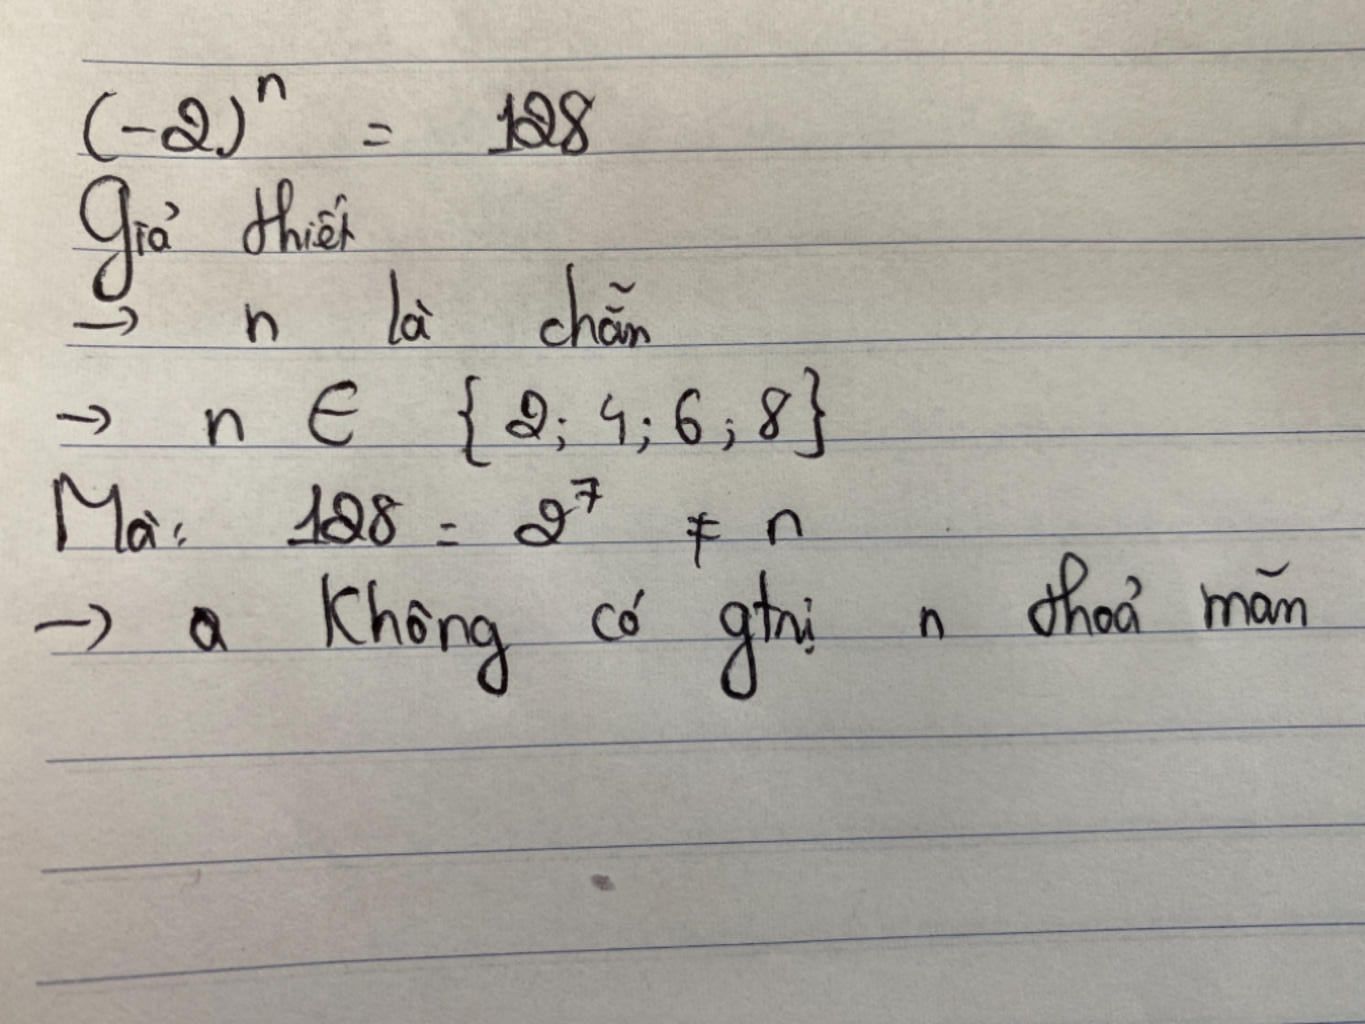 (-2)^n = 128
Giả thiết
→ n là chẵn
→ n ∈ {2; 4; 6; 8}
Mà: 128 = 2^7 ≠ n
→ a Không có gtrị n thoả mãn